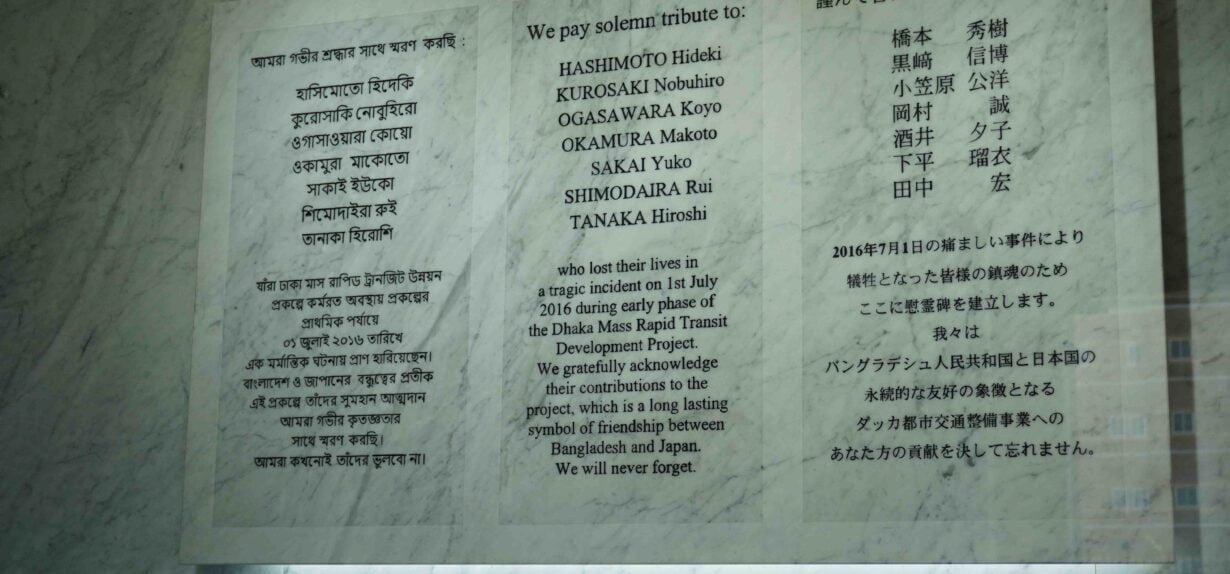 আমরা গভীর শ্রদ্ধার সাথে স্মরণ করছি :
হাসিমোতো হিদেকি
কুরোসাকি নোবুহিরো
ওগাসাওয়ারা কোয়ো
ওকামুরা মাকোতো
সাকাই ইউকো
শিমোদাইরা রুই
তানাকা হিরোশি
যাঁরা ঢাকা মাস রাপিড ট্রানজিট উন্নয়ন
প্রকল্পে কর্মরত অবস্থায় প্রকল্পের
প্রাথমিক পর্যায়ে
০১ জুলাই ২০১৬ তারিখে
এক মর্মান্তিক ঘটনায় প্রাণ হারিয়েছেন।
বাংলাদেশ ও জাপানের বন্ধুত্বের প্রতীক
এই প্রকল্পে তাঁদের সুমহান আত্মদান
আমরা গভীর কৃতজ্ঞতার
সাথে স্মরণ করছি।
আমরা কখনোই তাঁদের ভুলবো না।
We pay solemn tribute to:
HASHIMOTO Hideki
KUROSAKI Nobuhiro
OGASAWARA Koyo
OKAMURA Makoto
SAKAI Yuko
SHIMODAIRA Rui
TANAKA Hiroshi
who lost their lives in
a tragic incident on 1st July
2016 during early phase of
the Dhaka Mass Rapid Transit
Development Project.
We gratefully acknowledge
their contributions to the
project, which is a long lasting
symbol of friendship between
Bangladesh and Japan.
We will never forget.
橋本 秀樹
黒﨑 信博
小笠原 公洋
岡村 誠
酒井 夕子
下平 瑠衣
田中 宏
2016年7月1日の痛ましい事件により
犠牲となった皆様の鎮魂のため
ここに慰霊碑を建立します。
我々は
バングラデシュ人民共和国と日本国の
永続的な友好の象徴となる
ダッカ都市交通整備事業への
あなた方の貢献を決して忘れません。